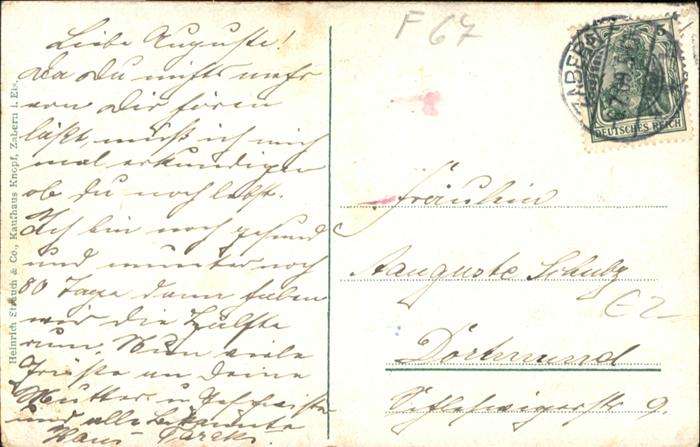 F 67
Liebe Auguste!
Da Du nichts mehr
von Dir hören
läßt, muß ich mich
mal erkundigen
ob du noch lebst.
Ich bin noch gesund
und munter noch
80 Tage dann haben
wir die Hälfte
rum. Nun viele
Grüße an Deine
Mutter u. Geschwister
und alle Bekannte
Hans
ZABERN
DEUTSCHES REICH
Fräulein
Auguste Schulz
Dortmund
Schleswigerstr 9.
Heinrich Strauch & Co., Kaufhaus Knopf, Zabern i. Els.